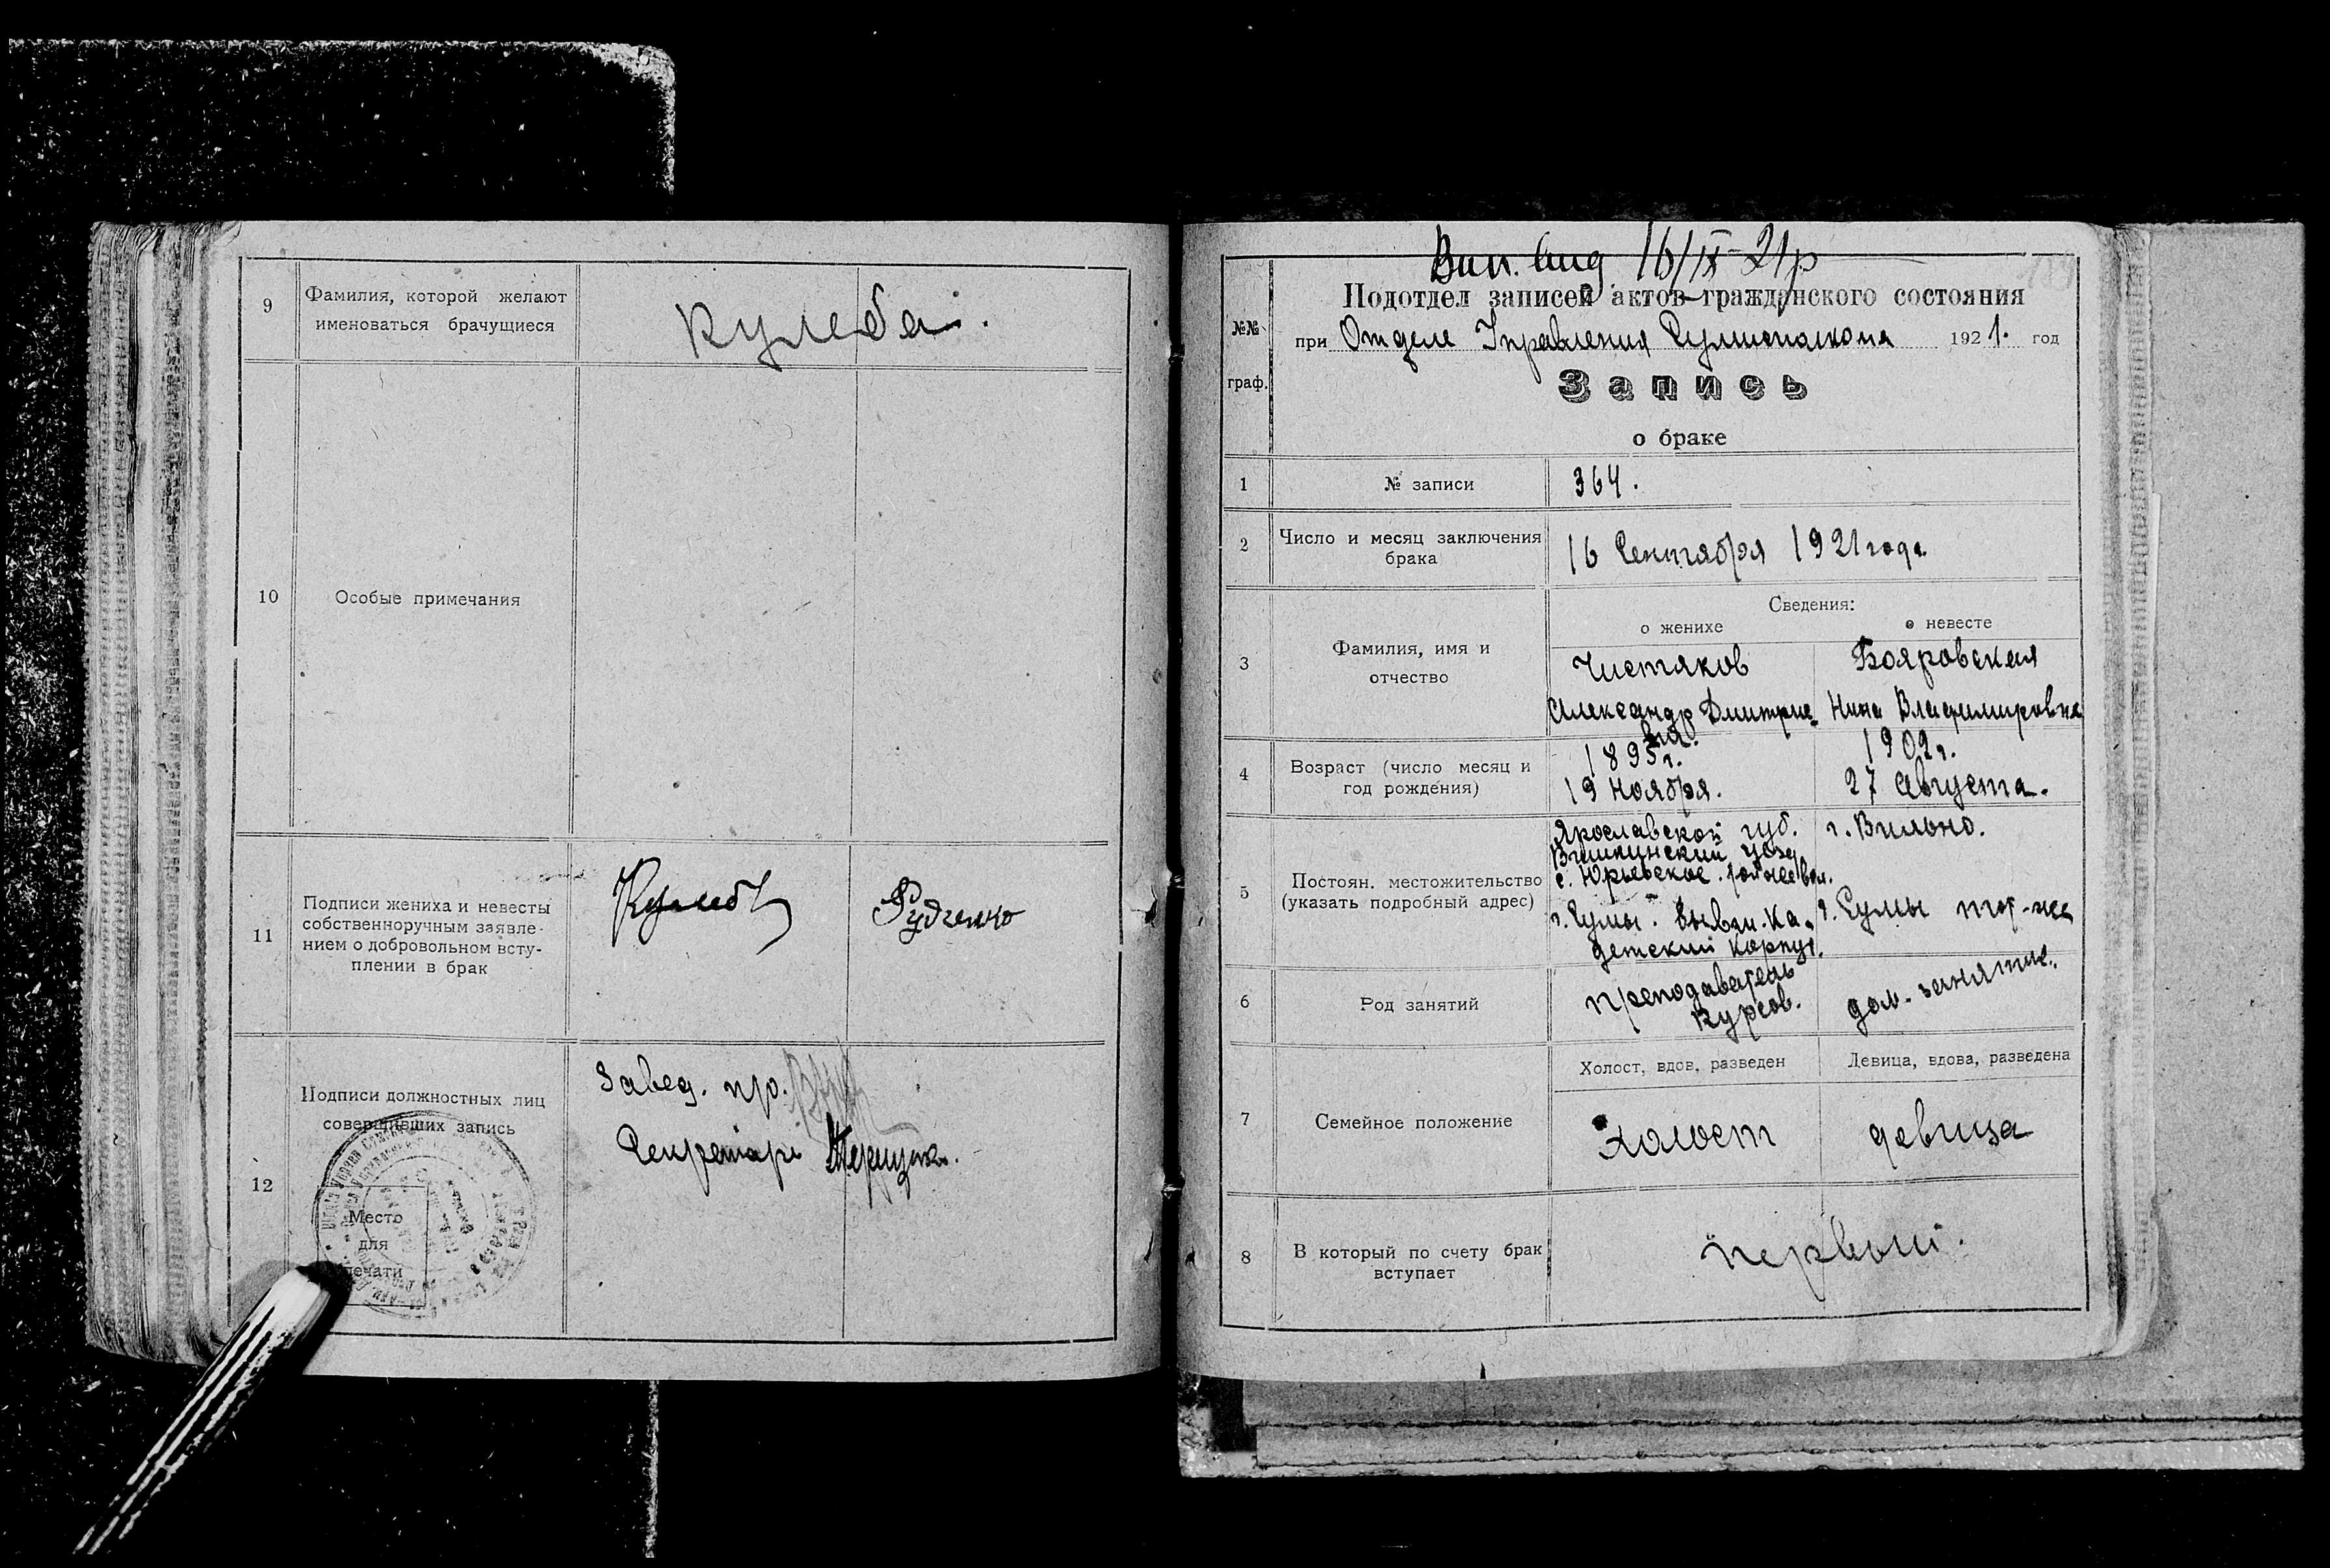 9
Фамилия, которой желают
именоваться брачущиеся
Кулеба.
10
Особые примечания
11
Подписи жениха и невесты
собственноручным заявле-
нием о добровольном всту-
плении в брак
Кулеба
Рудченко
12
Подписи должностных лиц
совершивших запись
Завед. пр.
Секретарь
Место
для
печати
Вип. Вид 16/IX-21р
Подотдел записей актов гражданского состояния
№№
граф.
при Отделе Управления Сумисполкома 1921. год
Запись
о браке
1
№ записи
364.
2
Число и месяц заключения
брака
16 Сентября 1921 года.
3
Фамилия, имя и
отчество
Сведения:
о женихе
о невесте
Чистяков
Александр Дмитрие-
вич.
Бояровская
Нина Владимировна
4
Возраст (число месяц и
год рождения)
1895г.
19 Ноября.
1902г.
27 Августа.
5
Постоян. местожительство
(указать подробный адрес)
Ярославской губ.
уезд
с. Юрьевское.
г. Сумы. бывш. Ка-
детский корпус.
г. Вильно.
г. Сумы тот-же
6
Род занятий
преподаватель
курсов.
дом. занятие.
7
Семейное положение
Холост, вдов, разведен
Девица, вдова, разведена
холост
девица
8
В который по счету брак
вступает
первый.